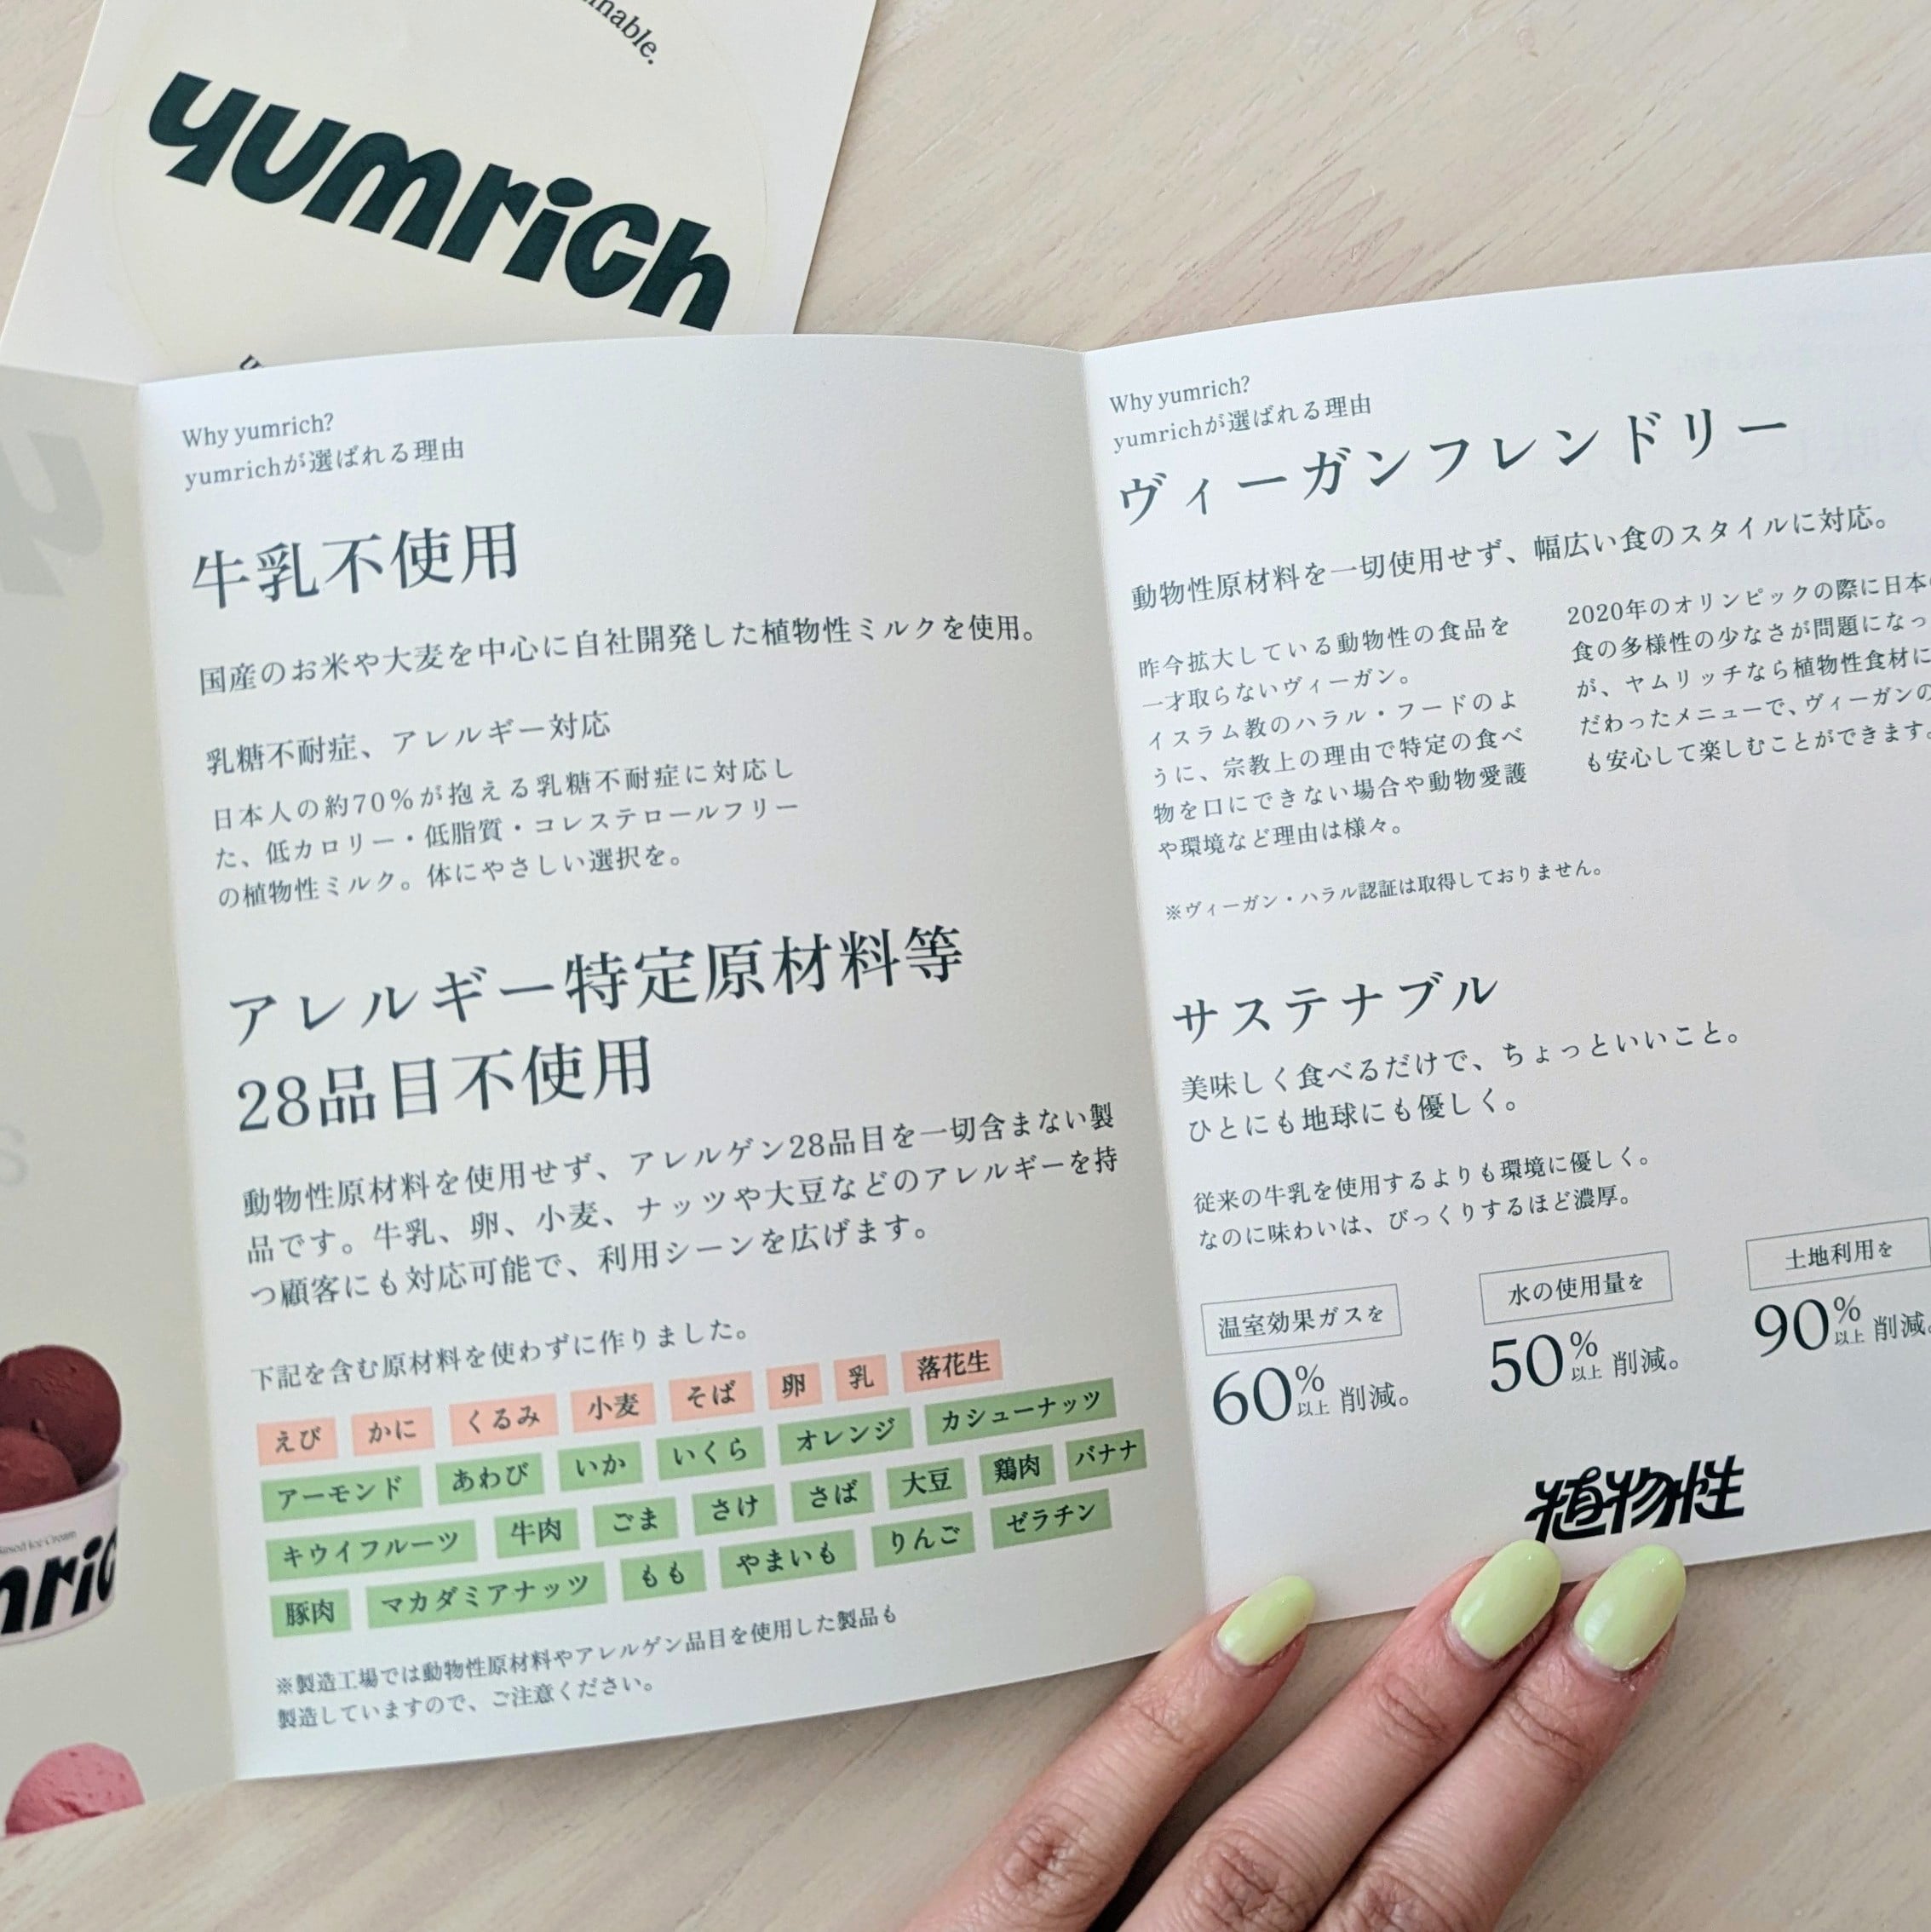 yumrich
Why yumrich?
yumrichが選ばれる理由
牛乳不使用
国産のお米や大麦を中心に自社開発した植物性ミルクを使用。
乳糖不耐症、アレルギー対応
日本人の約70%が抱える乳糖不耐症に対応し
た、低カロリー・低脂質・コレステロールフリー
の植物性ミルク。体にやさしい選択を。
アレルギー特定原材料等
28品目不使用
動物性原材料を使用せず、アレルゲン28品目を一切含まない製
品です。牛乳、卵、小麦、ナッツや大豆などのアレルギーを持
つ顧客にも対応可能で、利用シーンを広げます。
下記を含む原材料を使わずに作りました。
えび かに くるみ 小麦 そば 卵 乳 落花生
アーモンド あわび いか いくら オレンジ カシューナッツ
キウイフルーツ 牛肉 ごま さけ さば 大豆 鶏肉 バナナ
豚肉 マカダミアナッツ もも やまいも りんご ゼラチン
※製造工場では動物性原材料やアレルゲン品目を使用した製品も
製造していますので、ご注意ください。
Why yumrich?
yumrichが選ばれる理由
ヴィーガンフレンドリー
動物性原材料を一切使用せず、幅広い食のスタイルに対応。
昨今拡大している動物性の食品を
一才取らないヴィーガン。
イスラム教のハラル・フードのよ
うに、宗教上の理由で特定の食べ
物を口にできない場合や動物愛護
や環境など理由は様々。
2020年のオリンピックの際に日本
食の多様性の少なさが問題になっ
が、ヤムリッチなら植物性食材に
だわったメニューで、ヴィーガンの
も安心して楽しむことができます。
※ヴィーガン・ハラル認証は取得しておりません。
サステナブル
美味しく食べるだけで、ちょっといいこと。
ひとにも地球にも優しく。
従来の牛乳を使用するよりも環境に優しく。
なのに味わいは、びっくりするほど濃厚。
温室効果ガスを
60%以上削減。
水の使用量を
50%以上削減。
土地利用を
90%以上削減。
植物性
Ice Cream